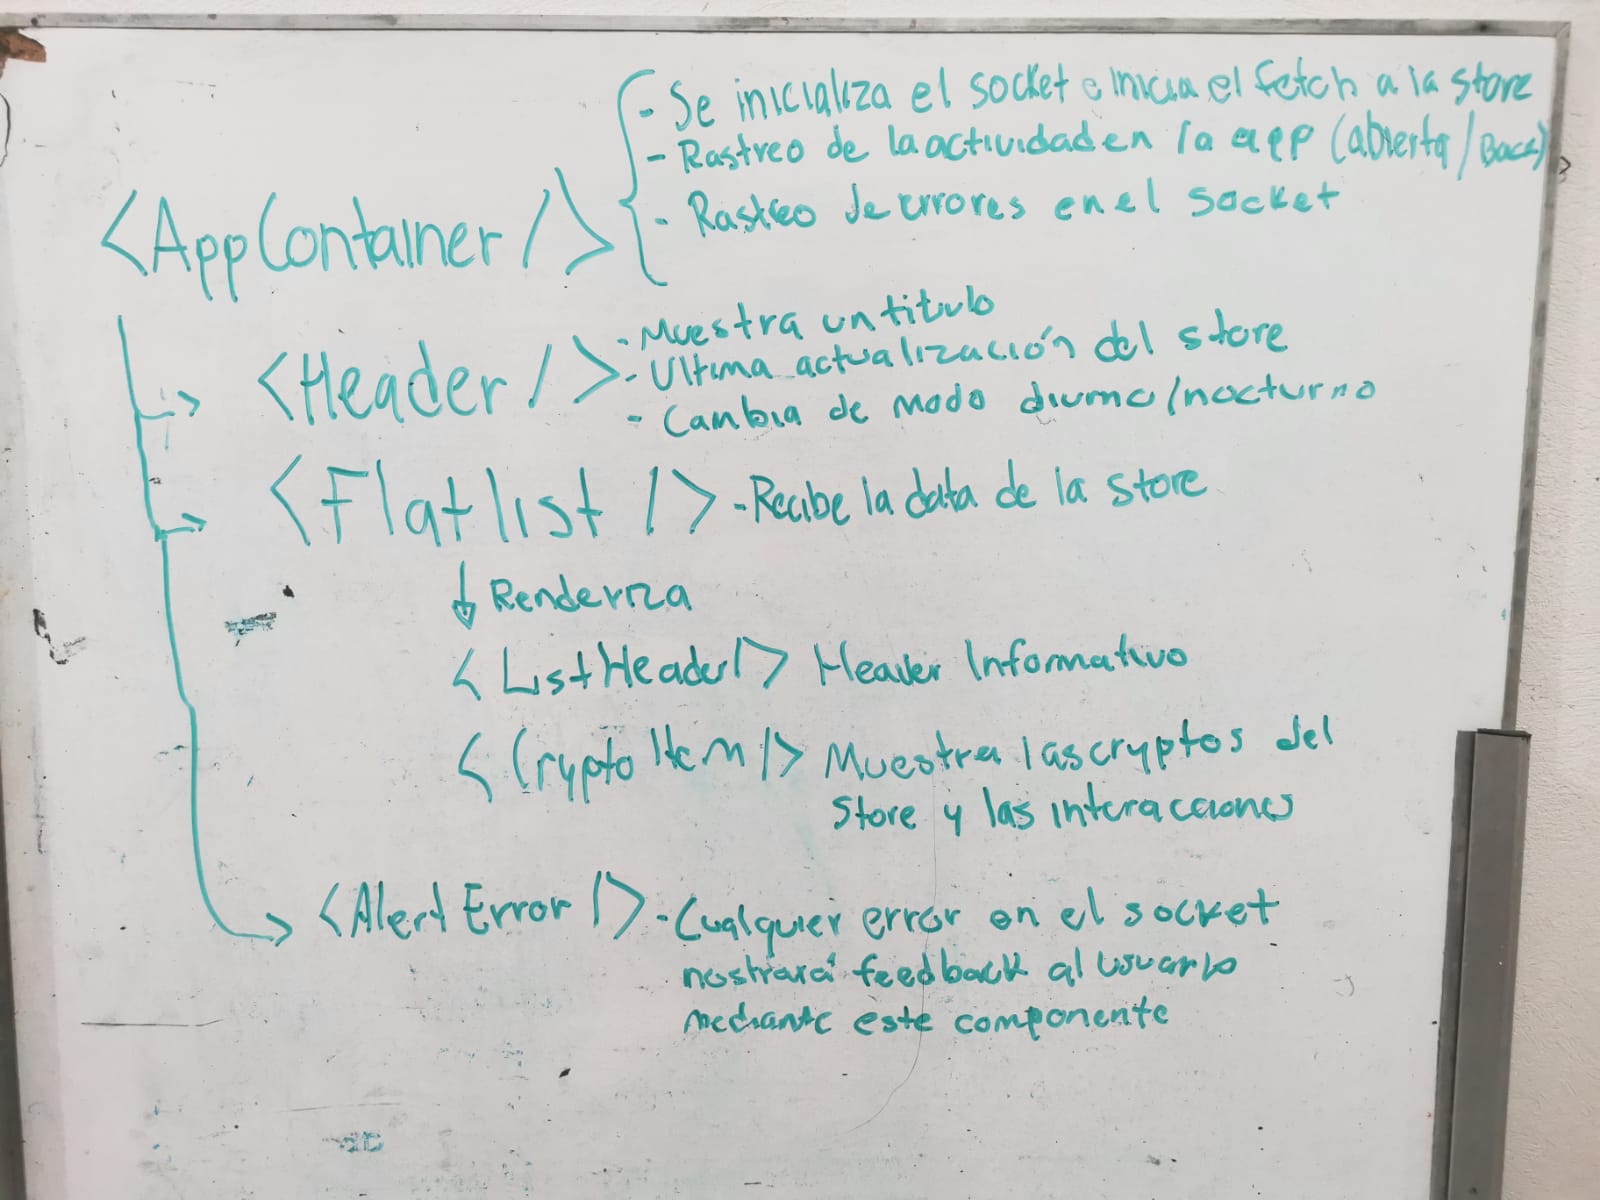 <AppContainer/>
- Se inicializa el socket e inicia el fetch a la store
- Rastreo de la actividad en la app (abierta/Back)
- Rastreo de errores en el socket
<Header/>
- Muestra un titulo
- Ultima actualización del store
- Cambia de modo diurno/nocturno
<Flatlist/> - Recibe la data de la store
↓ Renderiza
<ListHeader/> Header Informativo
<CryptoItem/> Muestra las cryptos del
Store y las interacciones
<AlertError/> - Cualquier error en el socket
mostrará feedback al usuario
mediante este componente